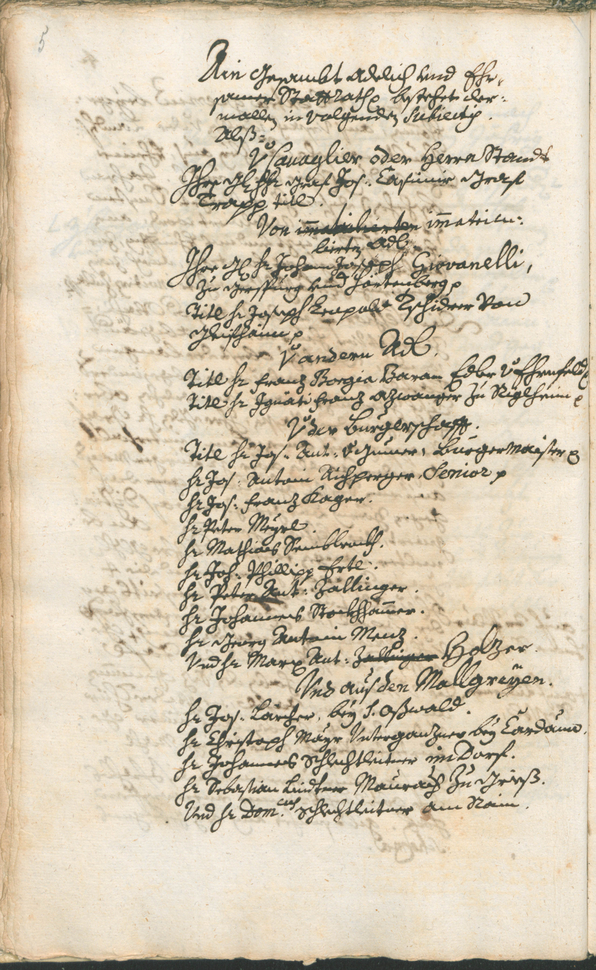 5
Ein gesambt Adelich und Ehr:
samer Stattrath bestehet der:
mallen in volgenden Subiectis.
Alß:
V: Cavaglier oder Herrn Stands
Graf Jos: Casimir Graf
Trapp titl
Von immatriculierten immatricu:
lierten Adl:
Johann Joseph Giovanelli,
zu Gerspurg und Hörtenberg p
Titl h: Joseph Leopold Tschiderer von
Gleifheim p
V: andern Adl.
Titl h: Franz Borgia Baron Eyberg v:
Titl h: Ignati Franz Azwanger zu p
V: der Burgerschafft.
Titl h: Jos: Ant: Gummer, Burgermaister p
h: Jos: Antoni Aichperger Senior p
h: Jos: Franz Kager.
h: Peter Mayrl.
h: Mathias Rembl
h: Joh: Phillipp Ertl.
h: Peter Ant: Zallinger.
h: Johannes Stockhammer.
h: Georg Antoni Menz.
Und h: Marx Ant: Zallinger Holzer.
Und aus den Mallgreyen.
h: Jos: Larcher, bey S: Oßwald.
h: Christoph Mayr Unterganzner bey Cardaun.
h: Johannes Schlechtleitner im Dorf.
h: Sebastian Lindner Maurach zu Grieß.
Und h: Dom: Schlechtleitner am Rain.